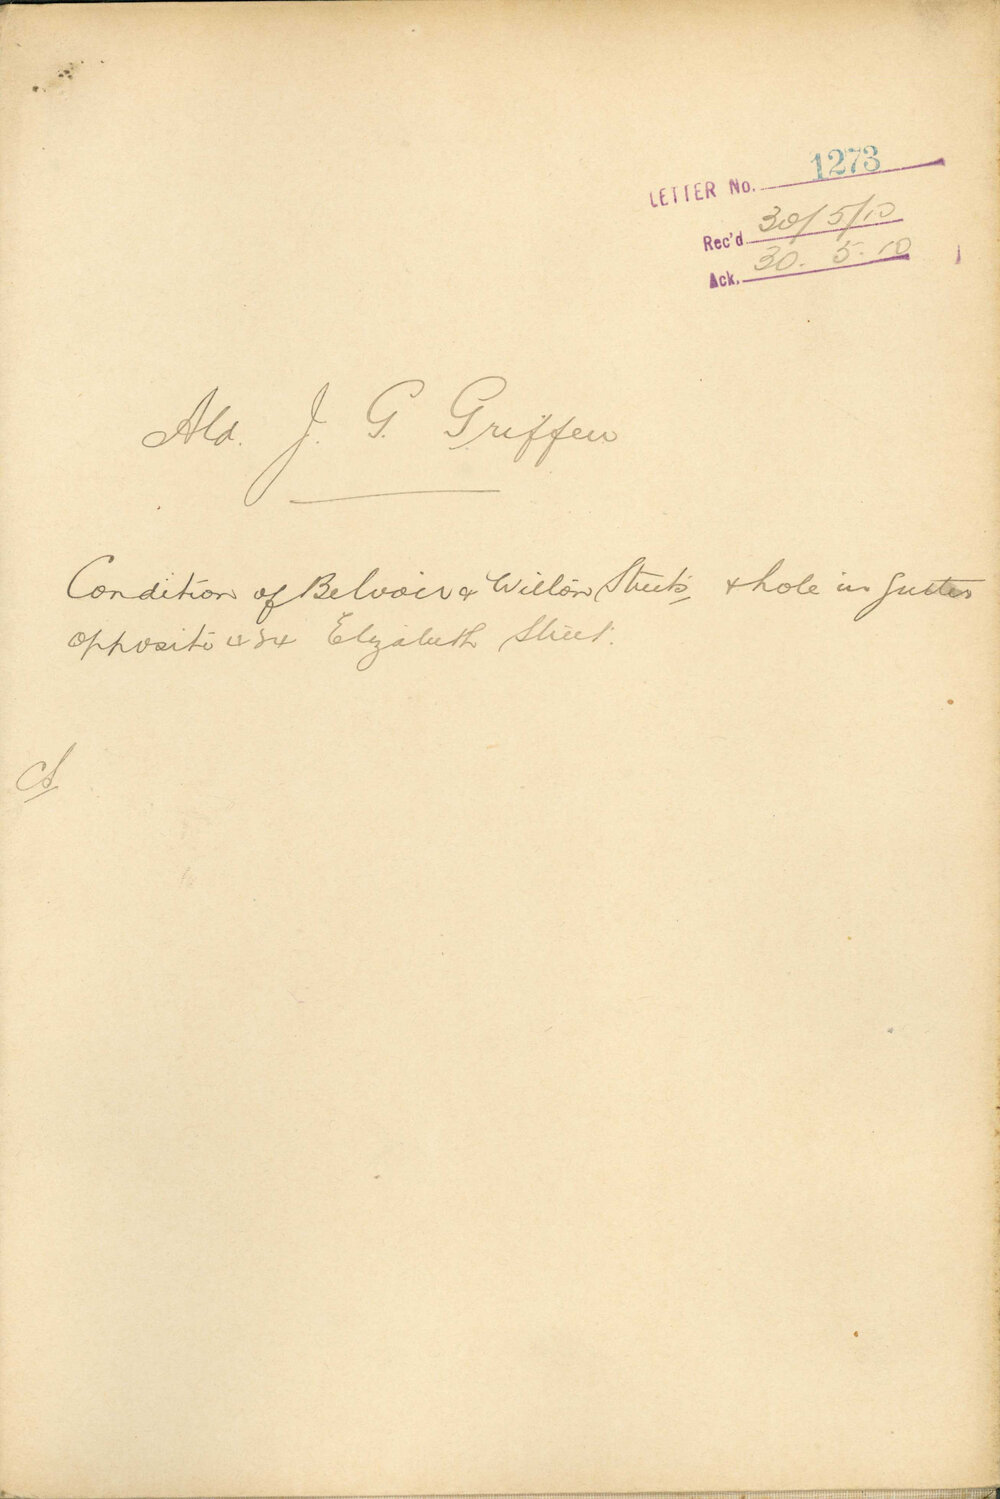 LETTER No. 1273
Rec'd 30/5/10
Ack. 30. 5. 10
Ald. J. G. Griffen
Condition of Belvoir & Wilton Streets, & hole in gutter
opposite 434 Elizabeth Street.